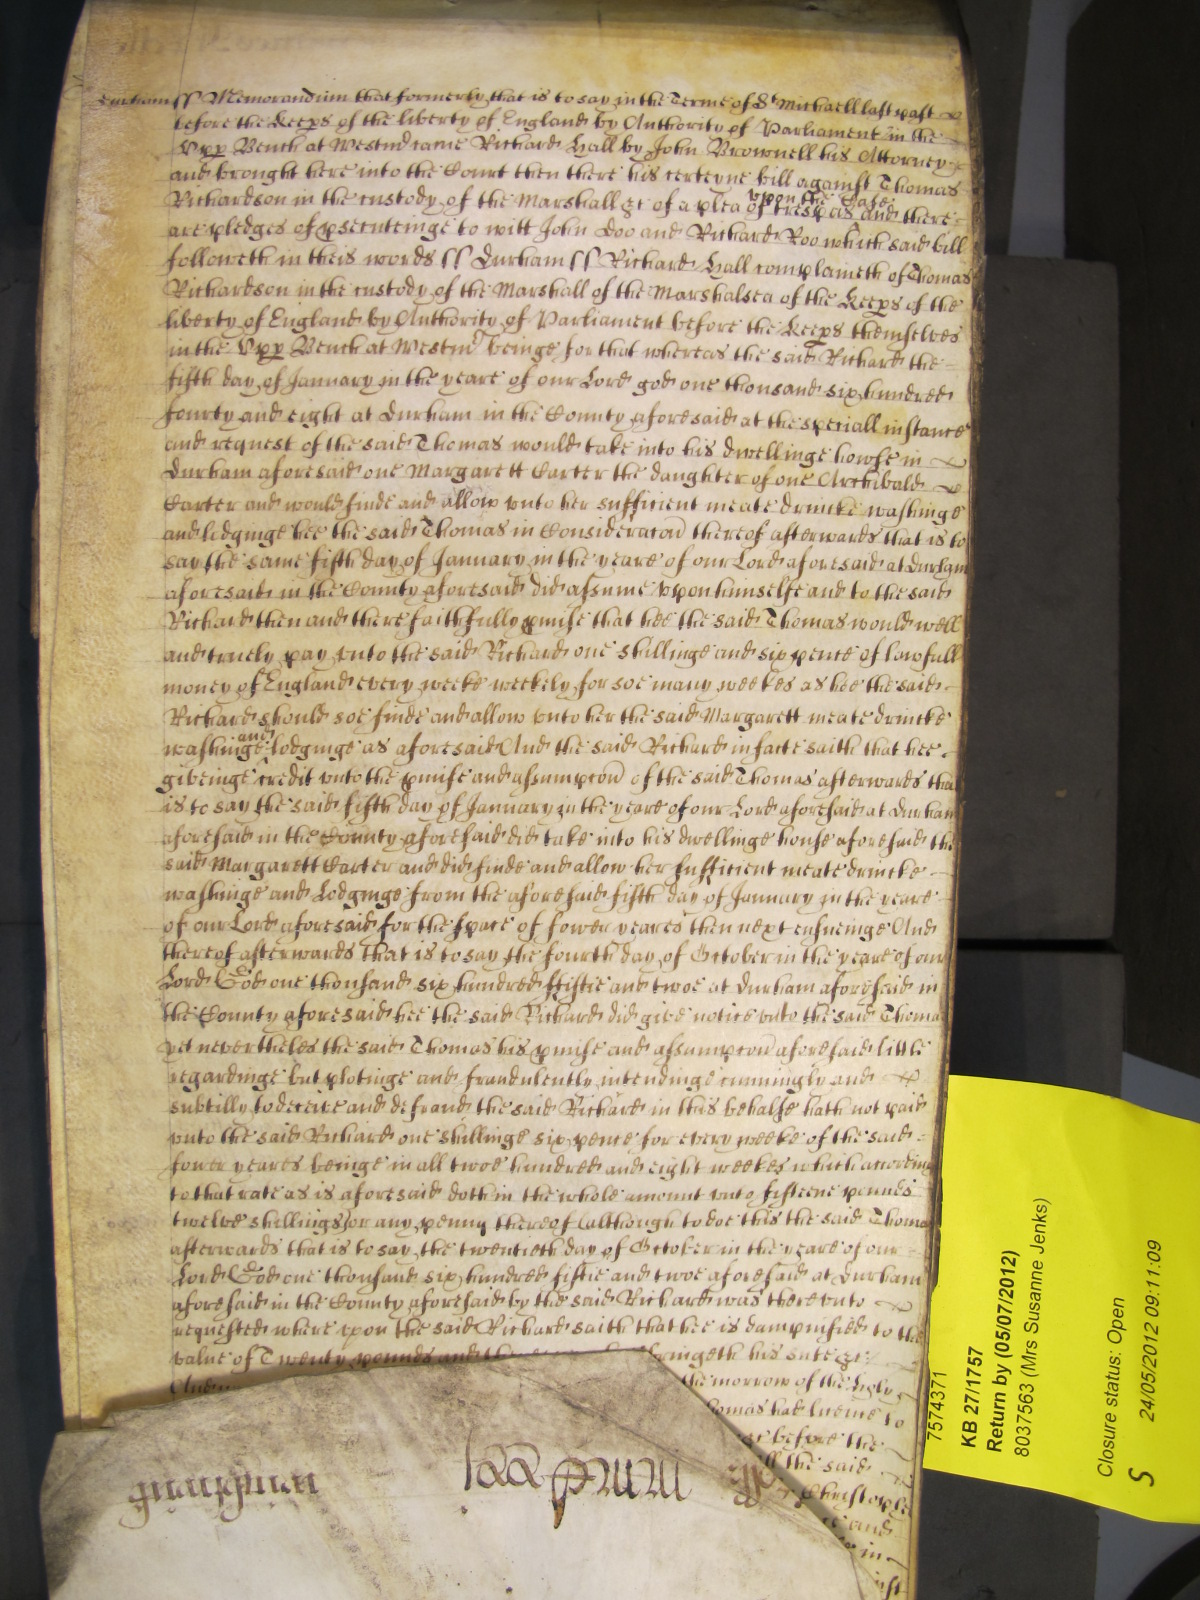 Durham ss Memorandum that formerly that is to say in the Terme of St Michaell last past
before the Keeps of the liberty of England by Authority of Parliament in the
Vpp Bench at Westm came Richard Hall by John Brownell his Attorney
and brought here into the Court then there his certeyne bill against Thomas
Richardson in the custody of the Marshall &c of a plea of trespas vpon the Case and there
are pledges of psecuteinge to witt John Doo and Richard Roo which said bill
followeth in theis words ss Durham ss Richard Hall complaineth of Thomas
Richardson in the custody of the Marshall of the Marshalsea of the Keeps of the
liberty of England by Authority of Parliament before the Keeps themselves
in the Vpp Bench at Westm beinge for that whereas the said Richard the
fifth day of January in the yeare of our Lord god one thousand six hundred
fourty and eight at Durham in the County aforesaid at the speciall instance
and request of the said Thomas would take into his dwellinge howse in
Durham aforesaid one Margarett Carter the daughter of one Archibald
Carter and would finde and allow vnto her sufficient meate drincke washinge
and lodginge hee the said Thomas in Consideracon thereof afterwards that is to
say the same fifth day of January in the yeare of our Lord aforesaid at Durham
aforesaid in the County aforesaid did assume vpon himselfe and to the said
Richard then and there faithfully pmise that hee the said Thomas would well
and truely pay vnto the said Richard one shillinge and six pence of lawfull
money of England every weeke weekely for soe many weekes as hee the said
Richard should soe finde and allow vnto her the said Margarett meate drincke
washinge and lodginge as aforesaid And the said Richard in facte saith that hee
giveinge credit vnto the pmise and assumpcon of the said Thomas afterwards that
is to say the said fifth day of January in the yeare of our Lord aforesaid at Durham
aforesaid in the County aforesaid did take into his dwellinge house aforesaid the
said Margarett Carter and did finde and allow her sufficient meate drincke
washinge and Lodginge from the aforesaid fifth day of January in the yeare
of our Lord aforesaid for the space of fower yeares then next ensueinge And
thereof afterwards that is to say the fourth day of October in the yeare of our
Lord God one thousand six hundred ffiftie and twoe at Durham aforesaid in
the County aforesaid hee the said Richard did give notice vnto the said Thomas
yet nevertheles the said Thomas his pmise and assumpcon aforesaid little
regardinge but plotinge and fraudulently intendinge cunningly and
subtilly to deceive and defraud the said Richard in this behalfe hath not paid
vnto the said Richard one shillinge six pence for every weeke of the said
fower yeares beinge in all twoe hundred and eight weekes which accordinge
to that rate as is aforesaid doth in the whole amount vnto fifteene pounds
twelve shillings or any penny thereof (although to doe this the said Thomas
afterwards that is to say the twentieth day of October in the yeare of our
Lord God one thousand six hundred fiftie and twoe aforesaid at Durham
aforesaid in the County aforesaid by the said Richard was therevnto
requested where vpon the said Richard saith that hee is dampnified to the
value of Twenty pounds and bringeth his sute &c
the morrow of the holy
Thomas had licence to
before the
the said
Christopher
and
in
7574371
KB 27/1757
Return by (05/07/2012)
8037563 (Mrs Susanne Jenks)
Closure status: Open
24/05/2012 09:11:09
S